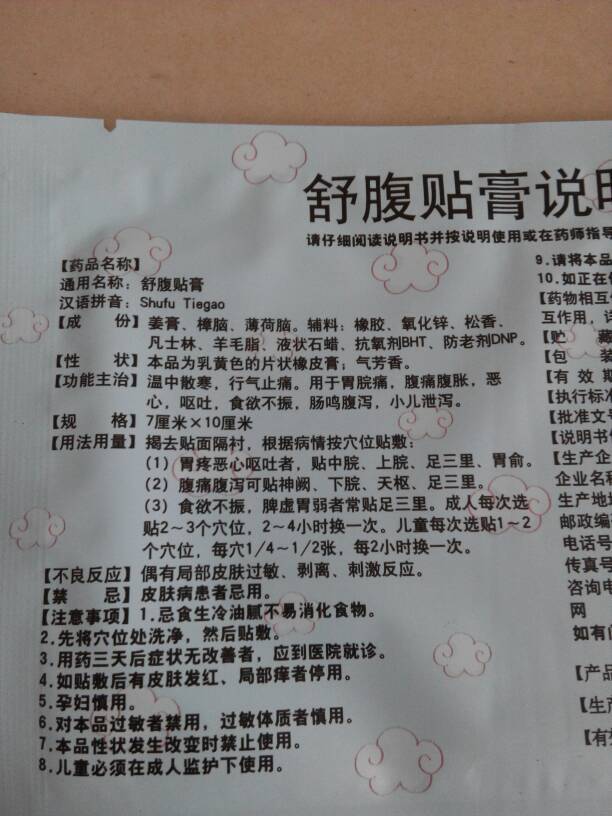 舒腹贴膏说明
请仔细阅读说明书并按说明使用或在药师指导
【药品名称】
通用名称：舒腹贴膏
汉语拼音：Shufu Tiegao
【成 份】姜膏、樟脑、薄荷脑。辅料：橡胶、氧化锌、松香、
凡士林、羊毛脂、液状石蜡、抗氧剂BHT、防老剂DNP。
【性 状】本品为乳黄色的片状橡皮膏；气芳香。
【功能主治】温中散寒，行气止痛。用于胃脘痛，腹痛腹胀，恶
心，呕吐，食欲不振，肠鸣腹泻，小儿泄泻。
【规 格】7厘米×10厘米
【用法用量】揭去贴面隔衬，根据病情按穴位贴敷：
（1）胃疼恶心呕吐者，贴中脘、上脘、足三里、胃俞。
（2）腹痛腹泻可贴神阙、下脘、天枢、足三里。
（3）食欲不振，脾虚胃弱者常贴足三里。成人每次选
贴2～3个穴位，2～4小时换一次。儿童每次选贴1～2
个穴位，每穴1/4～1/2张，每2小时换一次。
【不良反应】偶有局部皮肤过敏、剥离、刺激反应。
【禁 忌】皮肤病患者忌用。
【注意事项】1.忌食生冷油腻不易消化食物。
2.先将穴位处洗净，然后贴敷。
3.用药三天后症状无改善者，应到医院就诊。
4.如贴敷后有皮肤发红、局部痒者停用。
5.孕妇慎用。
6.对本品过敏者禁用，过敏体质者慎用。
7.本品性状发生改变时禁止使用。
8.儿童必须在成人监护下使用。
9.请将本品
10.如正在使
【药物相互作
互作用，详
【贮 藏
【包 装
【有 效 期
【执行标准
【批准文号
【说明书修
【生产企业
企业名称
生产地址
邮政编码
电话号
传真号
咨询电
网
如有问
【产品
【生产
【有效